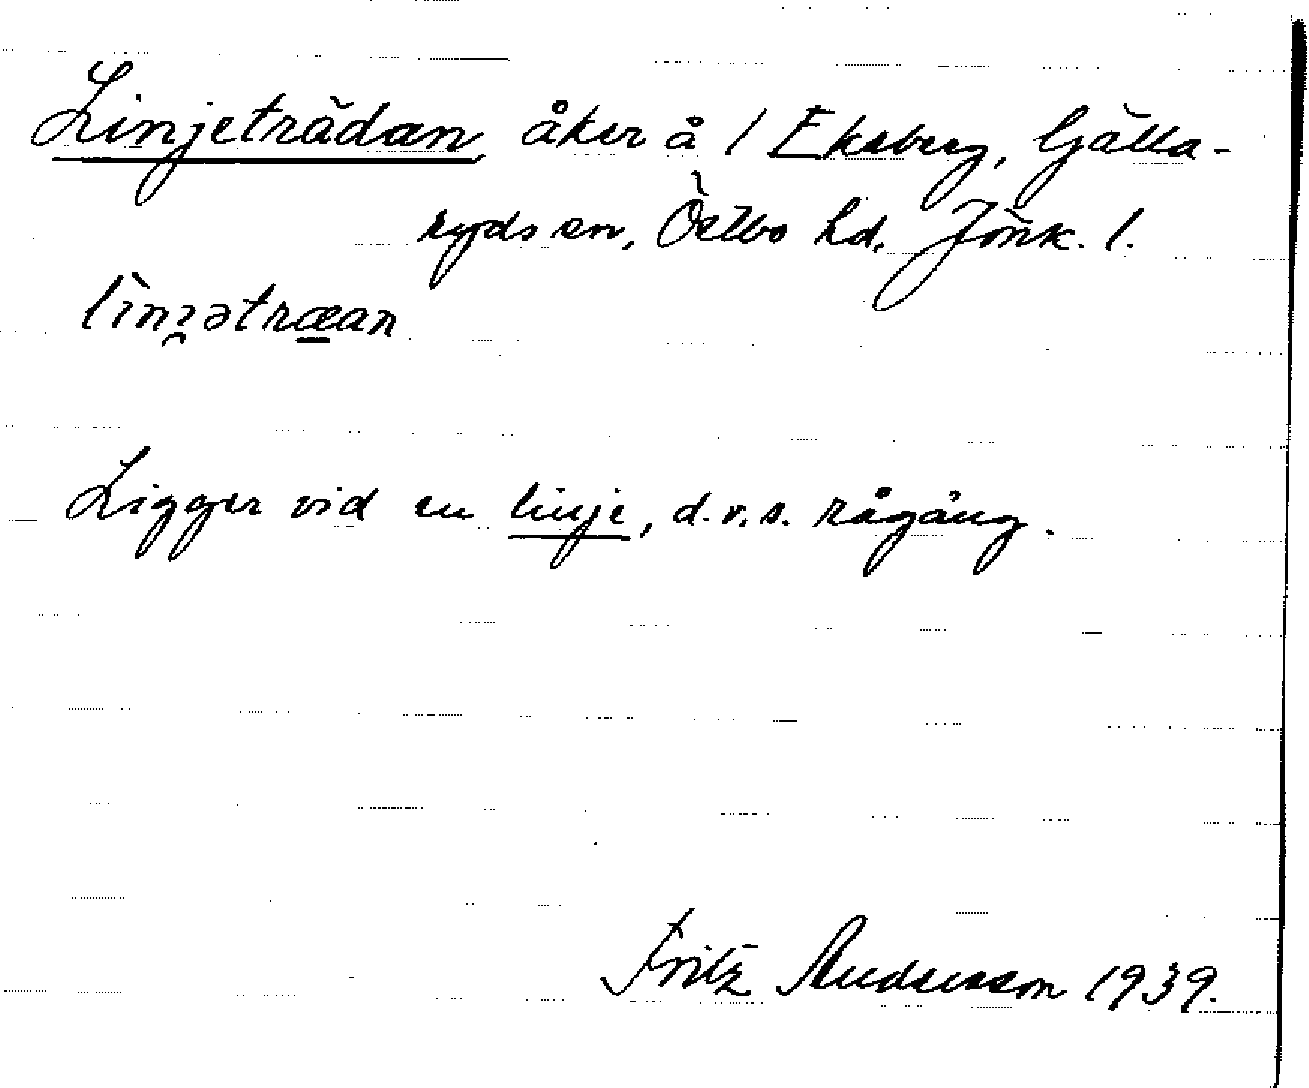 Linjeträdan, åker å 1 Eksberg, Gälla-
ryds sn, Östbo hd, Jönk. l.
lìni̯ətræan
Ligger vid en linje, d.v.s. rågång.
Fritz Andersson 1939.